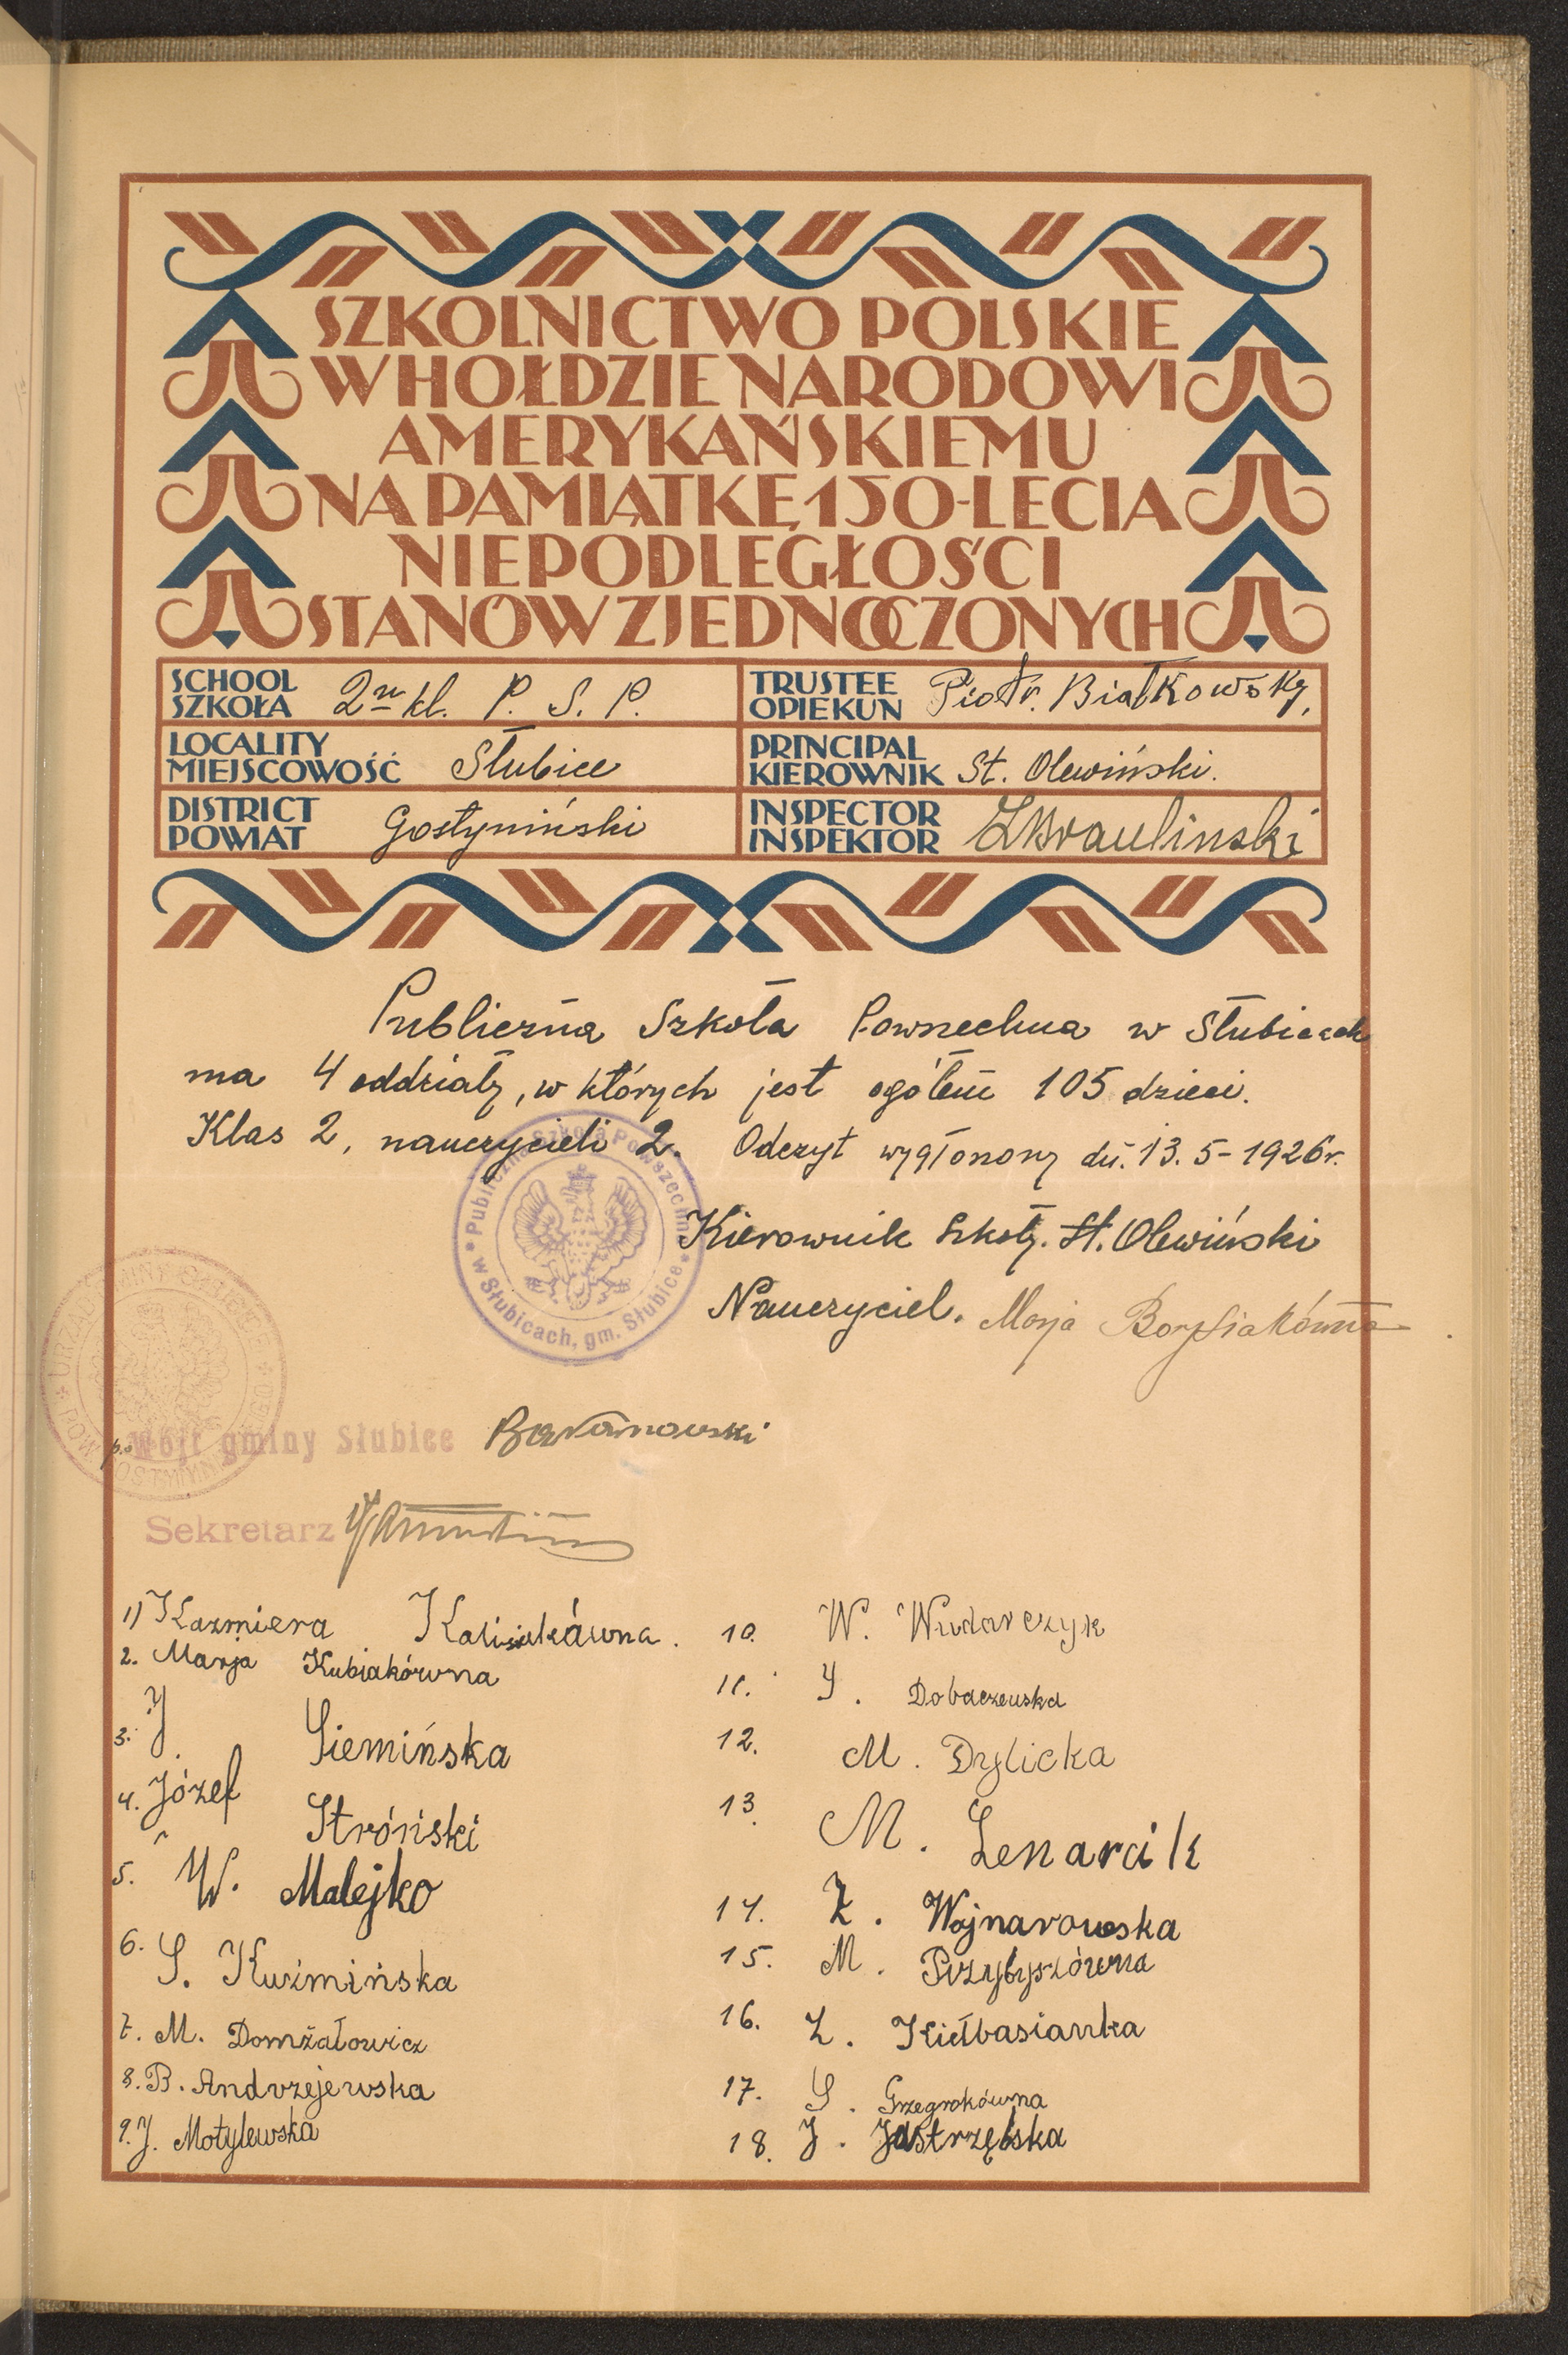 SZKOLNICTWO POLSKIE
W HOŁDZIE NARODOWI
AMERYKAŃSKIEMU
NA PAMIĄTKĘ 150-LECIA
NIEPODLEGŁOŚCI
STANÓW ZJEDNOCZONYCH
SCHOOL
SZKOŁA 2 kl. P. S. P.
TRUSTEE
OPIEKUN Piotr. Białkowsky,
LOCALITY
MIEJSCOWOŚĆ Słubice
PRINCIPAL
KIEROWNIK St. Olewiński.
DISTRICT
POWIAT Gostyniński
INSPECTOR
INSPEKTOR
Publiczna Szkoła Powszechna w Słubicach
ma 4 oddziały, w których jest ogółem 105 dzieci.
Klas 2, nauczycieli 2. Odczyt wygłoszony dn. 13. 5-1926 r.
Publiczna Szkoła Powszechna
w Słubicach, gm. Słubice
Kierownik Szkoły. St. Olewiński
Nauczyciel. Marja
URZĄD GMINY
p.o Wójt gminy Słubice Baranowski
Sekretarz
1) Kazmiera
2. Marja Kubiakówna
3. J. Siemińska
4. Józef Stróński
5. W. Malejko
6. S. Kuźmińska
7. M. Domżałowicz
8. B. Andrzejewska
9. J. Motylewska
10. W. Wudarczyk
11. J. Dobaczewska
12. M. Dylicka
13. M. Lenarcik
14. Z. Wojnarowska
15. M. Przybyszówna
16. Z. Kiełbasianka
17. S. Grzegrokówna
18. J. Jastrzębska